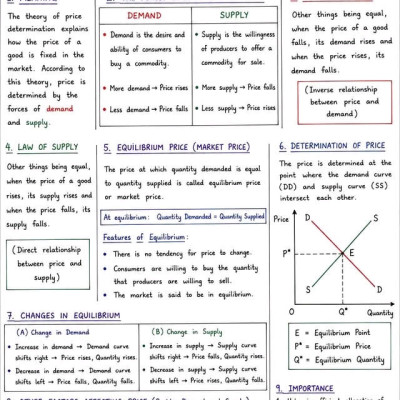 The theory of price
determination explains
how the price of a
good is fixed in the
market. According to
this theory, price is
determined by the
forces of demand
and supply.
DEMAND
SUPPLY
• Demand is the desire and
ability of consumers to
buy a commodity.
• More demand → Price rises
• Less demand → Price falls
• Supply is the willingness
of producers to offer a
commodity for sale.
• More supply → Price falls
• Less supply → Price rises
Other things being equal,
when the price of a good
falls, its demand rises and
when the price rises, its
demand falls.
(Inverse relationship
between price and
demand)
4. LAW OF SUPPLY
Other things being equal,
when the price of a good
rises, its supply rises and
when the price falls, its
supply falls.
(Direct relationship
between price and
supply)
5. EQUILIBRIUM PRICE (MARKET PRICE)
The price at which quantity demanded is equal
to quantity supplied is called equilibrium price
or market price.
At equilibrium: Quantity Demanded = Quantity Supplied
Features of Equilibrium:
• There is no tendency for price to change.
• Consumers are willing to buy the quantity
that producers are willing to sell.
• The market is said to be in equilibrium.
6. DETERMINATION OF PRICE
The price is determined at the
point where the demand curve
(DD) and supply curve (SS)
intersect each other.
Price
D
S
P*
E
S
D
O
Q*
Quantity
E = Equilibrium Point
P* = Equilibrium Price
Q* = Equilibrium Quantity
7. CHANGES IN EQUILIBRIUM
(A) Change in Demand
• Increase in demand → Demand curve
shifts right → Price rises, Quantity rises.
• Decrease in demand → Demand curve
shifts left → Price falls, Quantity falls.
(B) Change in Supply
• Increase in supply → Supply curve
shifts right → Price falls, Quantity rises.
• Decrease in supply → Supply curve
shifts left → Price rises, Quantity falls.
9. IMPORTANCE